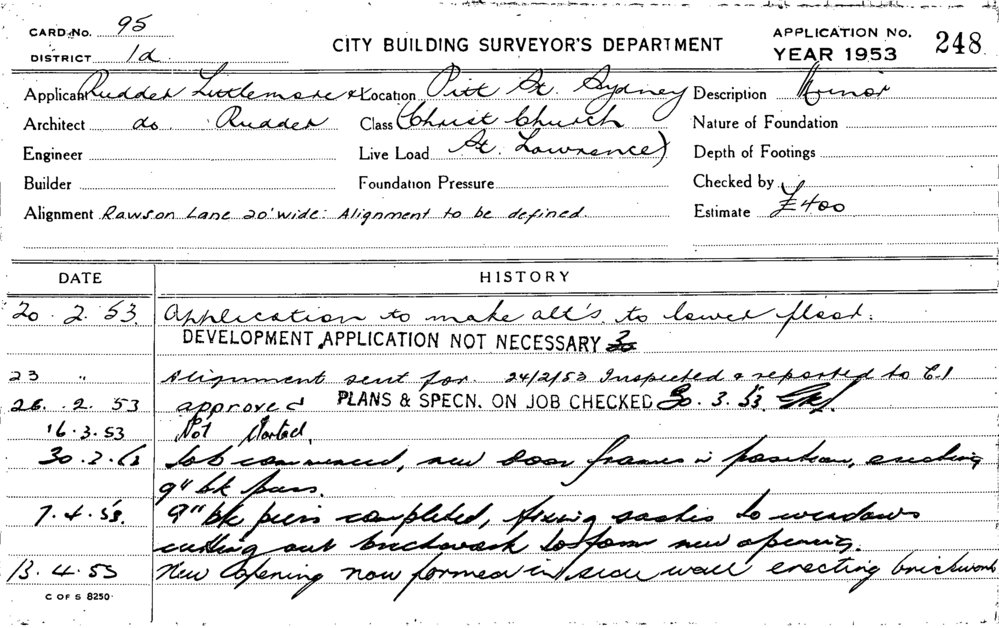 CARD No. 95
DISTRICT 1a
CITY BUILDING SURVEYOR'S DEPARTMENT
APPLICATION No. 248
YEAR 1953
Applicant Rudder Littlemore & Location Pitt St. Sydney Description Minor
Architect do Rudder Class (Christ Church Nature of Foundation
Engineer Live Load St. Lawrence) Depth of Footings
Builder Foundation Pressure Checked by
Alignment Rawson Lane 20' wide: Alignment to be defined. Estimate £400
DATE HISTORY
20. 2. 53. Application to make alt's. to lower floor.
DEVELOPMENT APPLICATION NOT NECESSARY
23 " Alignment sent for. 24/2/53 Inspected & reported to C.I
26. 2. 53 approved PLANS & SPECN. ON JOB CHECKED 30. 3. 53.
16.3.53 Not started.
30.3.53 Job commenced, new door frames in position, erecting
9" bk piers.
7.4.53. 9" bk piers completed, fixing sashes to windows
cutting out brickwork to form new opening.
13.4.53 New opening now formed in side wall erecting brickwork
C OF S 8250